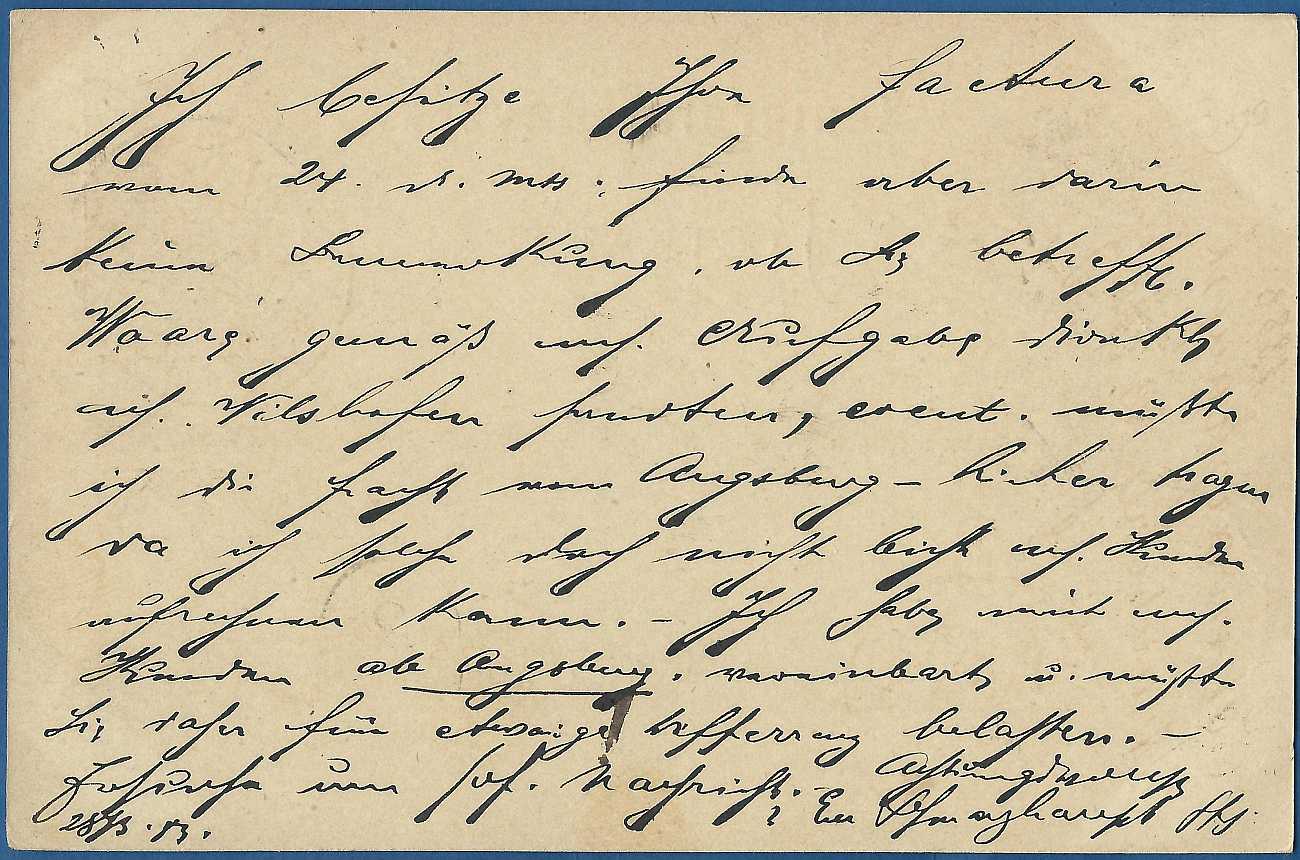 Ich besitze Ihre factura
vom 24. d. Mts: finde aber darin
keine Bemerkung, ob Sie betreffd.
Waare gemäß mr. Aufgabe direkt
nach Vilshofen sandten, event. müßte
ich die Fracht von Augsburg – hieher tragen
da ich solche doch nicht leicht mr. Kunden
aufrechnen kann. – Ich habe mit mr.
Kunden ab Augsburg. vereinbart u. müßte
Sie daher für etwaige Differenz belasten. –
Ersuche um sof. Nachricht. – Achtungsvollst
28/3. 83.